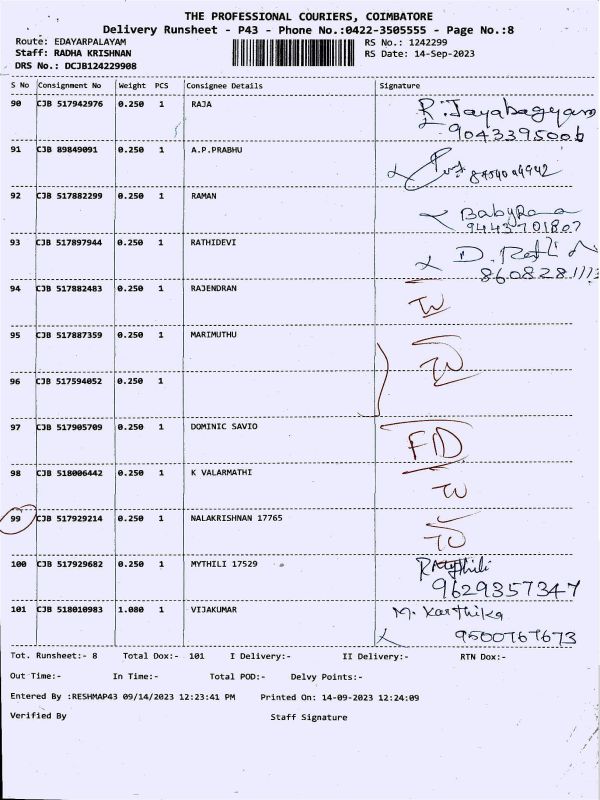 THE PROFESSIONAL COURIERS, COIMBATORE
Delivery Runsheet - P43 - Phone No.:0422-3505555 - Page No.:8
Route: EDAYARPALAYAM RS No.: 1242299
Staff: RADHA KRISHNAN RS Date: 14-Sep-2023
DRS No.: DCJB124229908
S No Consignment No Weight PCS Consignee Details Signature
90 CJB 517942976 0.250 1 RAJA R. Jayabagyam
9043395006
91 CJB 89849091 0.250 1 A.P.PRABHU
92 CJB 517882299 0.250 1 RAMAN BabyRama
9443701807
93 CJB 517897944 0.250 1 RATHIDEVI D. Rathi
8608281113
94 CJB 517882483 0.250 1 RAJENDRAN
95 CJB 517887359 0.250 1 MARIMUTHU
96 CJB 517594052 0.250 1
97 CJB 517905709 0.250 1 DOMINIC SAVIO
98 CJB 518006442 0.250 1 K VALARMATHI
99 CJB 517929214 0.250 1 NALAKRISHNAN 17765
100 CJB 517929682 0.250 1 MYTHILI 17529 R Mythili
9629357347
101 CJB 518010983 1.080 1 VIJAKUMAR M. Karthika
9500767673
Tot. Runsheet:- 8 Total Dox:- 101 I Delivery:- II Delivery:- RTN Dox:-
Out Time:- In Time:- Total POD:- Delvy Points:-
Entered By :RESHMAP43 09/14/2023 12:23:41 PM Printed On: 14-09-2023 12:24:09
Verified By Staff Signature